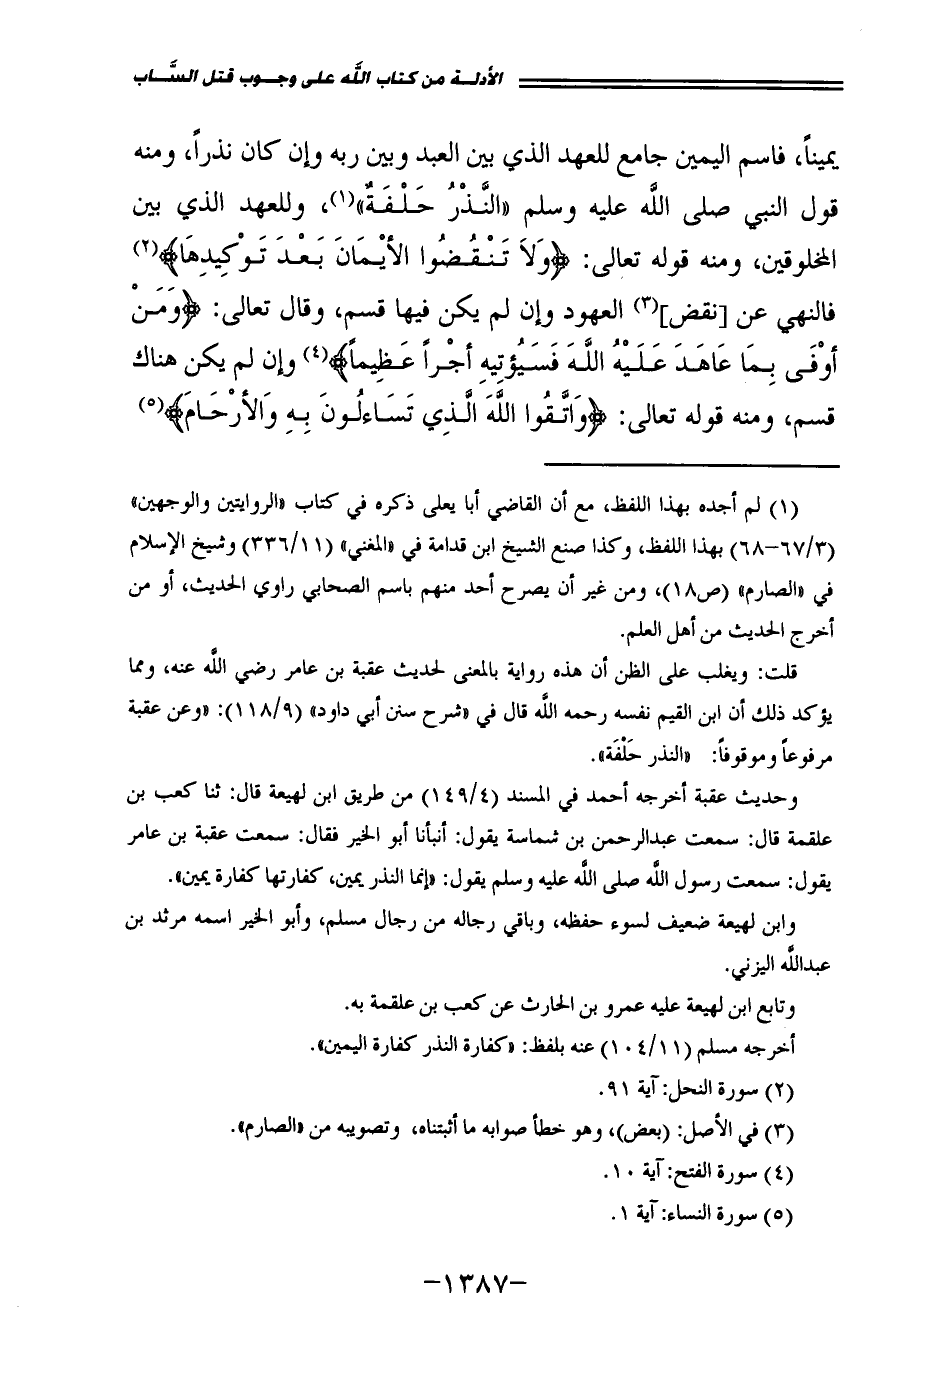 الأدلـة من كتاب اللَّه على وجـوب قتل السَّـاب
يميناً، فاسم اليمين جامع للعهد الذي بين العبد وبين ربه وإن كان نذراً، ومنه
قول النبي صلى اللَّه عليه وسلم «النَّذْرُ حَلْفَةٌ»(١)، وللعهد الذي بين
المخلوقين، ومنه قوله تعالى: ﴿وَلاَ تَنْقُضُوا الأيْمَانَ بَعْدَ تَوْكِيدِهَا﴾(٢)
فالنهي عن [نقض](٣) العهود وإن لم يكن فيها قسم، وقال تعالى: ﴿وَمَنْ
أوْفَى بِمَا عَاهَدَ عَلَيْهُ اللَّهَ فَسَيُؤتِيهِ أجْراً عَظِيماً﴾(٤) وإن لم يكن هناك
قسم، ومنه قوله تعالى: ﴿وَاتَّقُوا اللَّهَ الَّذِي تَسَاءلُونَ بِهِ وَالأرْحَامَ﴾(٥)
(١) لم أجده بهذا اللفظ، مع أن القاضي أبا يعلى ذكره في كتاب «الروايتين والوجهين»
(٣/٦٧–٦٨) بهذا اللفظ، وكذا صنع الشيخ ابن قدامة في «المغني» (١١/٣٣٦) وشيخ الإسلام
في «الصارم» (ص١٨)، ومن غير أن يصرح أحد منهم باسم الصحابي راوي الحديث، أو من
أخرج الحديث من أهل العلم.
قلت: ويغلب على الظن أن هذه رواية بالمعنى لحديث عقبة بن عامر رضي اللَّه عنه، ومما
يؤكد ذلك أن ابن القيم نفسه رحمه اللَّه قال في «شرح سنن أبي داود» (٩/١١٨): «وعن عقبة
مرفوعاً وموقوفاً: «النذر حَلْفَة».
وحديث عقبة أخرجه أحمد في المسند (٤/١٤٩) من طريق ابن لهيعة قال: ثنا كعب بن
علقمة قال: سمعت عبدالرحمن بن شماسة يقول: أنبأنا أبو الخير فقال: سمعت عقبة بن عامر
يقول: سمعت رسول اللَّه صلى اللَّه عليه وسلم يقول: «إنما النذر يمين، كفارتها كفارة يمين».
وابن لهيعة ضعيف لسوء حفظه، وباقي رجاله من رجال مسلم، وأبو الخير اسمه مرثد بن
عبداللَّه اليزني.
وتابع ابن لهيعة عليه عمرو بن الحارث عن كعب بن علقمة به.
أخرجه مسلم (١١/١٠٤) عنه بلفظ: «كفارة النذر كفارة اليمين».
(٢) سورة النحل: آية ٩١.
(٣) في الأصل: (بعض)، وهو خطأ صوابه ما أثبتناه، وتصويبه من «الصارم».
(٤) سورة الفتح: آية ١٠.
(٥) سورة النساء: آية ١.
–١٣٨٧–